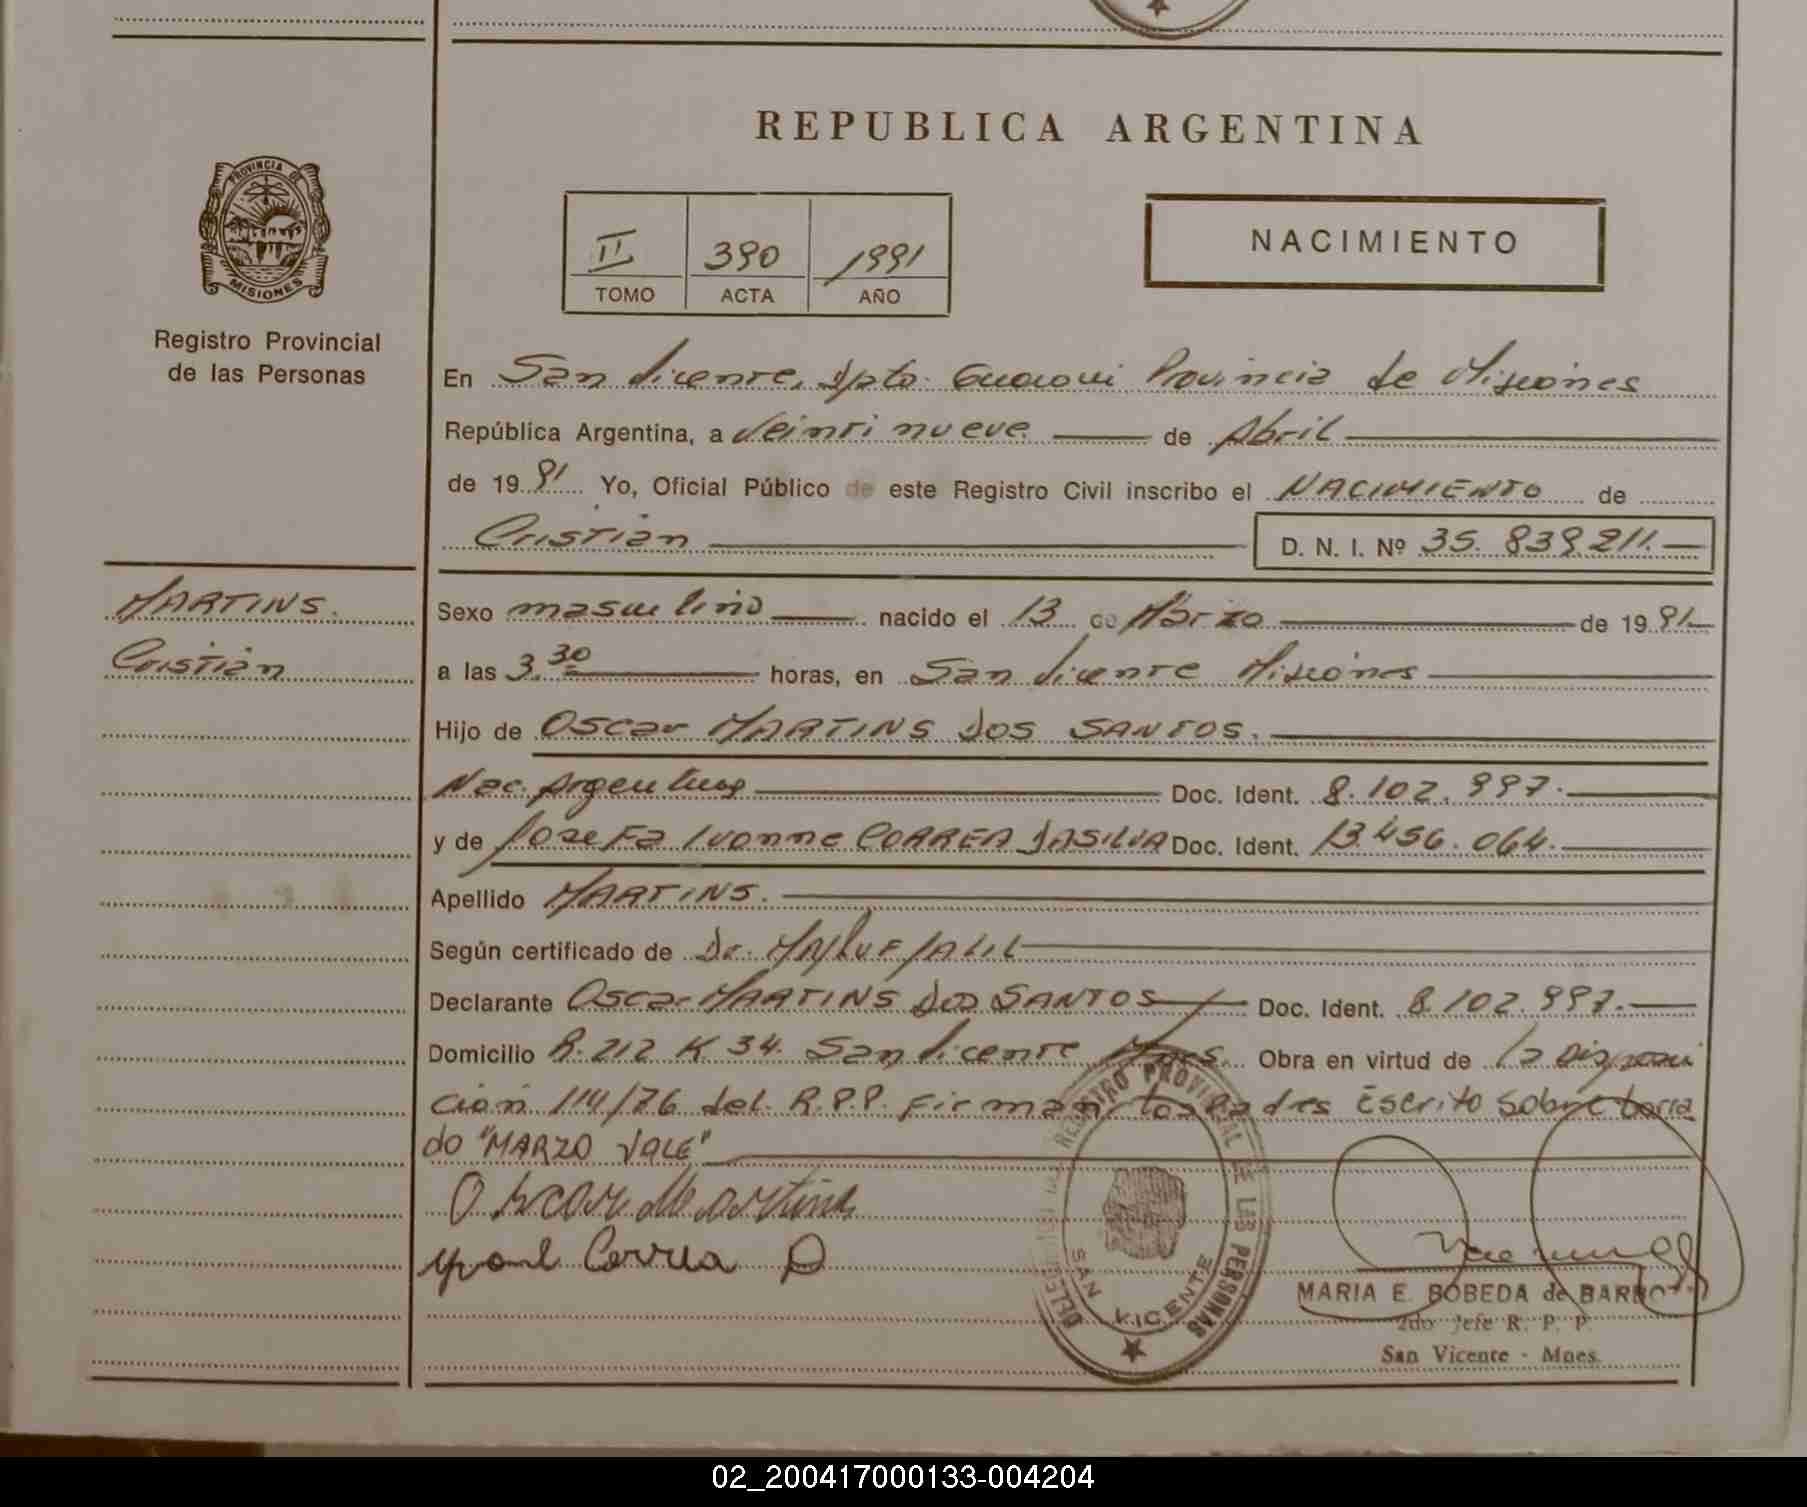 REPUBLICA ARGENTINA
PROVINCIA DE
MISIONES
Registro Provincial
de las Personas
II 390 1991
TOMO ACTA AÑO
NACIMIENTO
En San Vicente, Dpto. Guaraní Provincia de Misiones
República Argentina, a Veinti nueve de Abril
de 1991 Yo, Oficial Público de este Registro Civil inscribo el NACIMIENTO de
Cristian D. N. I. Nº 35.839.211.
MARTINS.
Cristian
Sexo masculino nacido el 13 de Marzo de 1991
a las 3.30 horas, en San Vicente Misiones
Hijo de Oscar MARTINS DOS SANTOS.
Nac. Argentina Doc. Ident. 8.102.997.
y de Josefa Ivonne CORREA DASILVA Doc. Ident. 13.456.064.
Apellido MARTINS.
Según certificado de Dr. JALIL
Declarante Oscar MARTINS DOS SANTOS Doc. Ident. 8.102.997.
Domicilio R. 212 K 34. San Vicente Mnes. Obra en virtud de la Disposi
ción 114/76 del R.P.P. Firman los Padres Escrito sobre borra
do "MARZO VALE"
Oscar Martins
Correa D
DELEGACION REGISTRO PROVINCIAL DE LAS PERSONAS
SAN VICENTE
MARIA E. BOBEDA de BARBO
2do Jefe R. P. P.
San Vicente - Mnes.
02_200417000133-004204